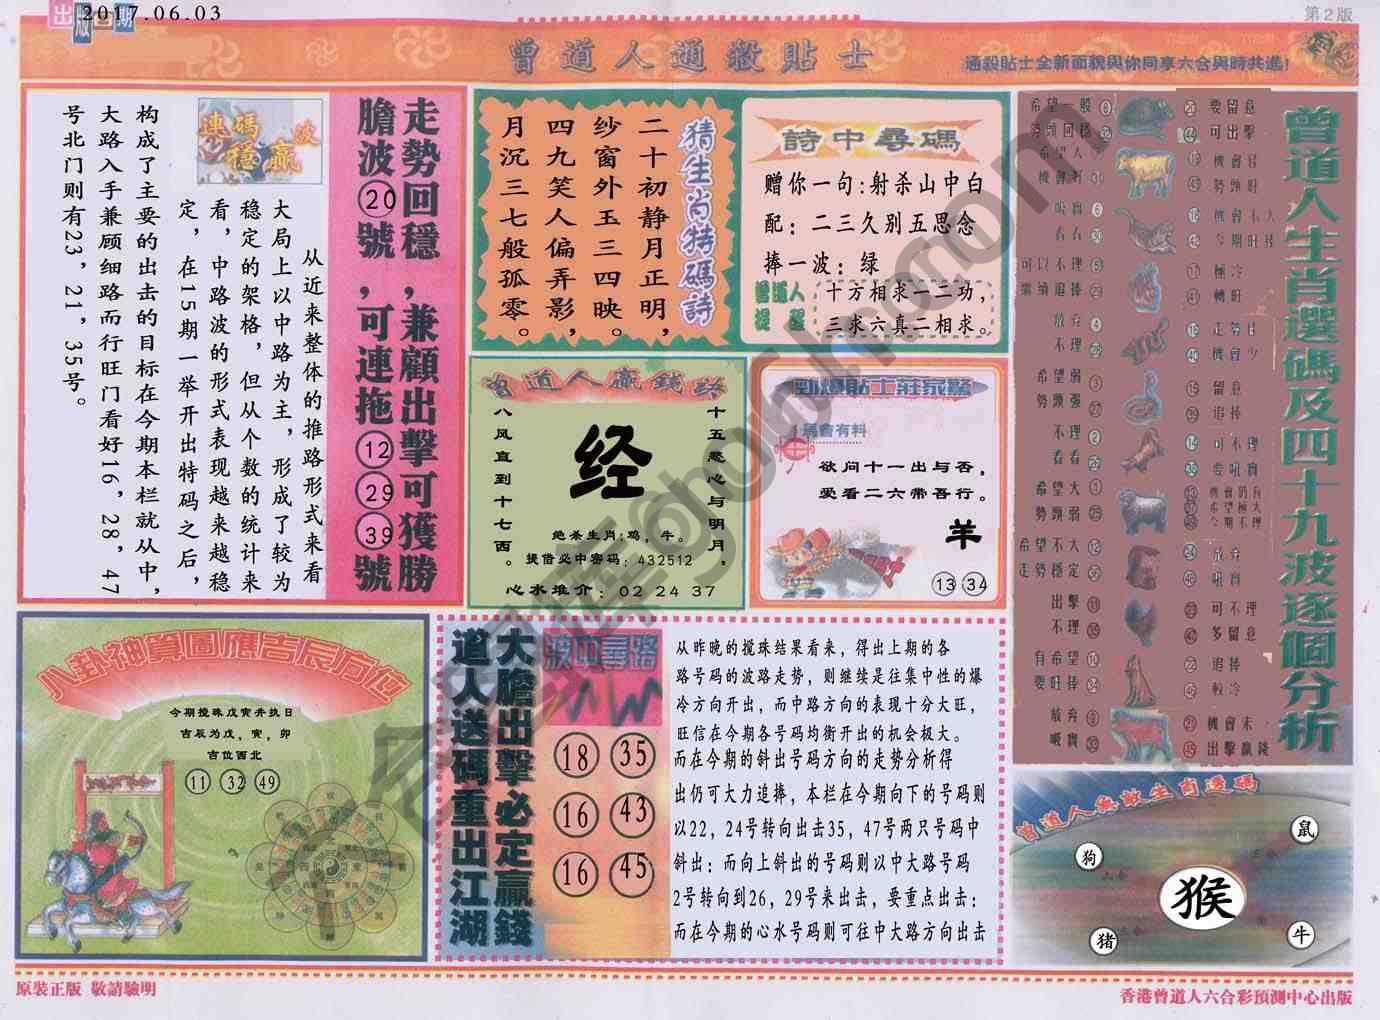 出版日期
2017.06.03
第2版
曾道人通殺貼士
通殺貼士全新面貌與你同享六合與時共進!
走勢回穩,兼顧出擊可獲勝
膽波⑳號,可連拖⑫㉙㊴號
連碼穩贏波
从近来整体的推路形式来看
大局上以中路为主，形成了较为
稳定的架格，但从个数的统计来
看，中路波的形式表现越来越稳
定，在15期一举开出特码之后，
构成了主要的出击的目标在今期本栏就从中，
大路入手兼顾细路而行旺门看好16，28，47
号北门则有23，21，35号。
猜生肖特碼詩
二十初静月正明，
纱窗外玉三四映。
四九笑人偏弄影，
月沉三七般孤零。
詩中尋碼
赠你一句:射杀山中白
配：二三久别五思念
捧一波：绿
曾道人提醒
十方相求一二功，
三求六真二相求。
曾道人贏錢路
十五慈心与明月，
八风直到十七西。
经
绝杀生肖:鸡，牛。
提借必中密码：432512
心水推介：02 24 37
勁爆貼士莊家驚
馬會有料
欲问十一出与否，
爱看二六带吾行。
羊
13 34
曾道人生肖選碼及四十九波逐個分析
希望一般
要留意
勢頭回穩
可出擊
希望人
機會容
機會好
勢頭旺
吼實
機會不大
看看
今期旺捧
可以不理
極冷
繼續追捧
轉旺
放弃
走勢佳
不理
機會少
希望弱
留意
勢頭强
追捧
不理
可不理
看看
要吼實
希望大
機會仍有
希望極大
勢頭弱
今期不理
希望不大
放弃
走勢穩定
吼實
出擊
可不理
不理
多留意
有希望
追捧
要旺捧
較冷
放弃
機會末
吸實
出擊贏錢
八卦神算圖應吉辰方位
今期搅珠戊寅井执日
吉辰为戊，寅，卯
吉位西北
11 32 49
大膽出擊必定贏錢
道人送碼重出江湖
波中尋路
18 35
16 43
16 45
从昨晚的搅珠结果看来，得出上期的各
路号码的波路走势，则继续是往集中性的爆
冷方向开出，而中路方向的表现十分大旺，
旺信在今期各号码均衡开出的机会极大。
而在今期的斜出号码方向的走势分析得
出仍可大力追捧，本栏在今期向下的号码则
以22，24号转向出击35，47号两只号码中
斜出；而向上斜出的号码则以中大路号码
2号转向到26，29号来出击，要重点出击；
而在今期的心水号码则可往中大路方向出击
曾道人無敵生肖選碼
鼠
狗
猴
猪
牛
原裝正版 敬請驗明
香港曾道人六合彩預測中心出版